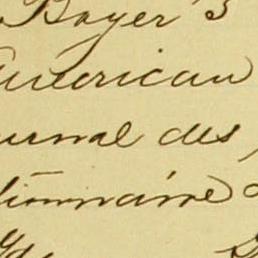 Boyer's
American
urnal des
tionnaire